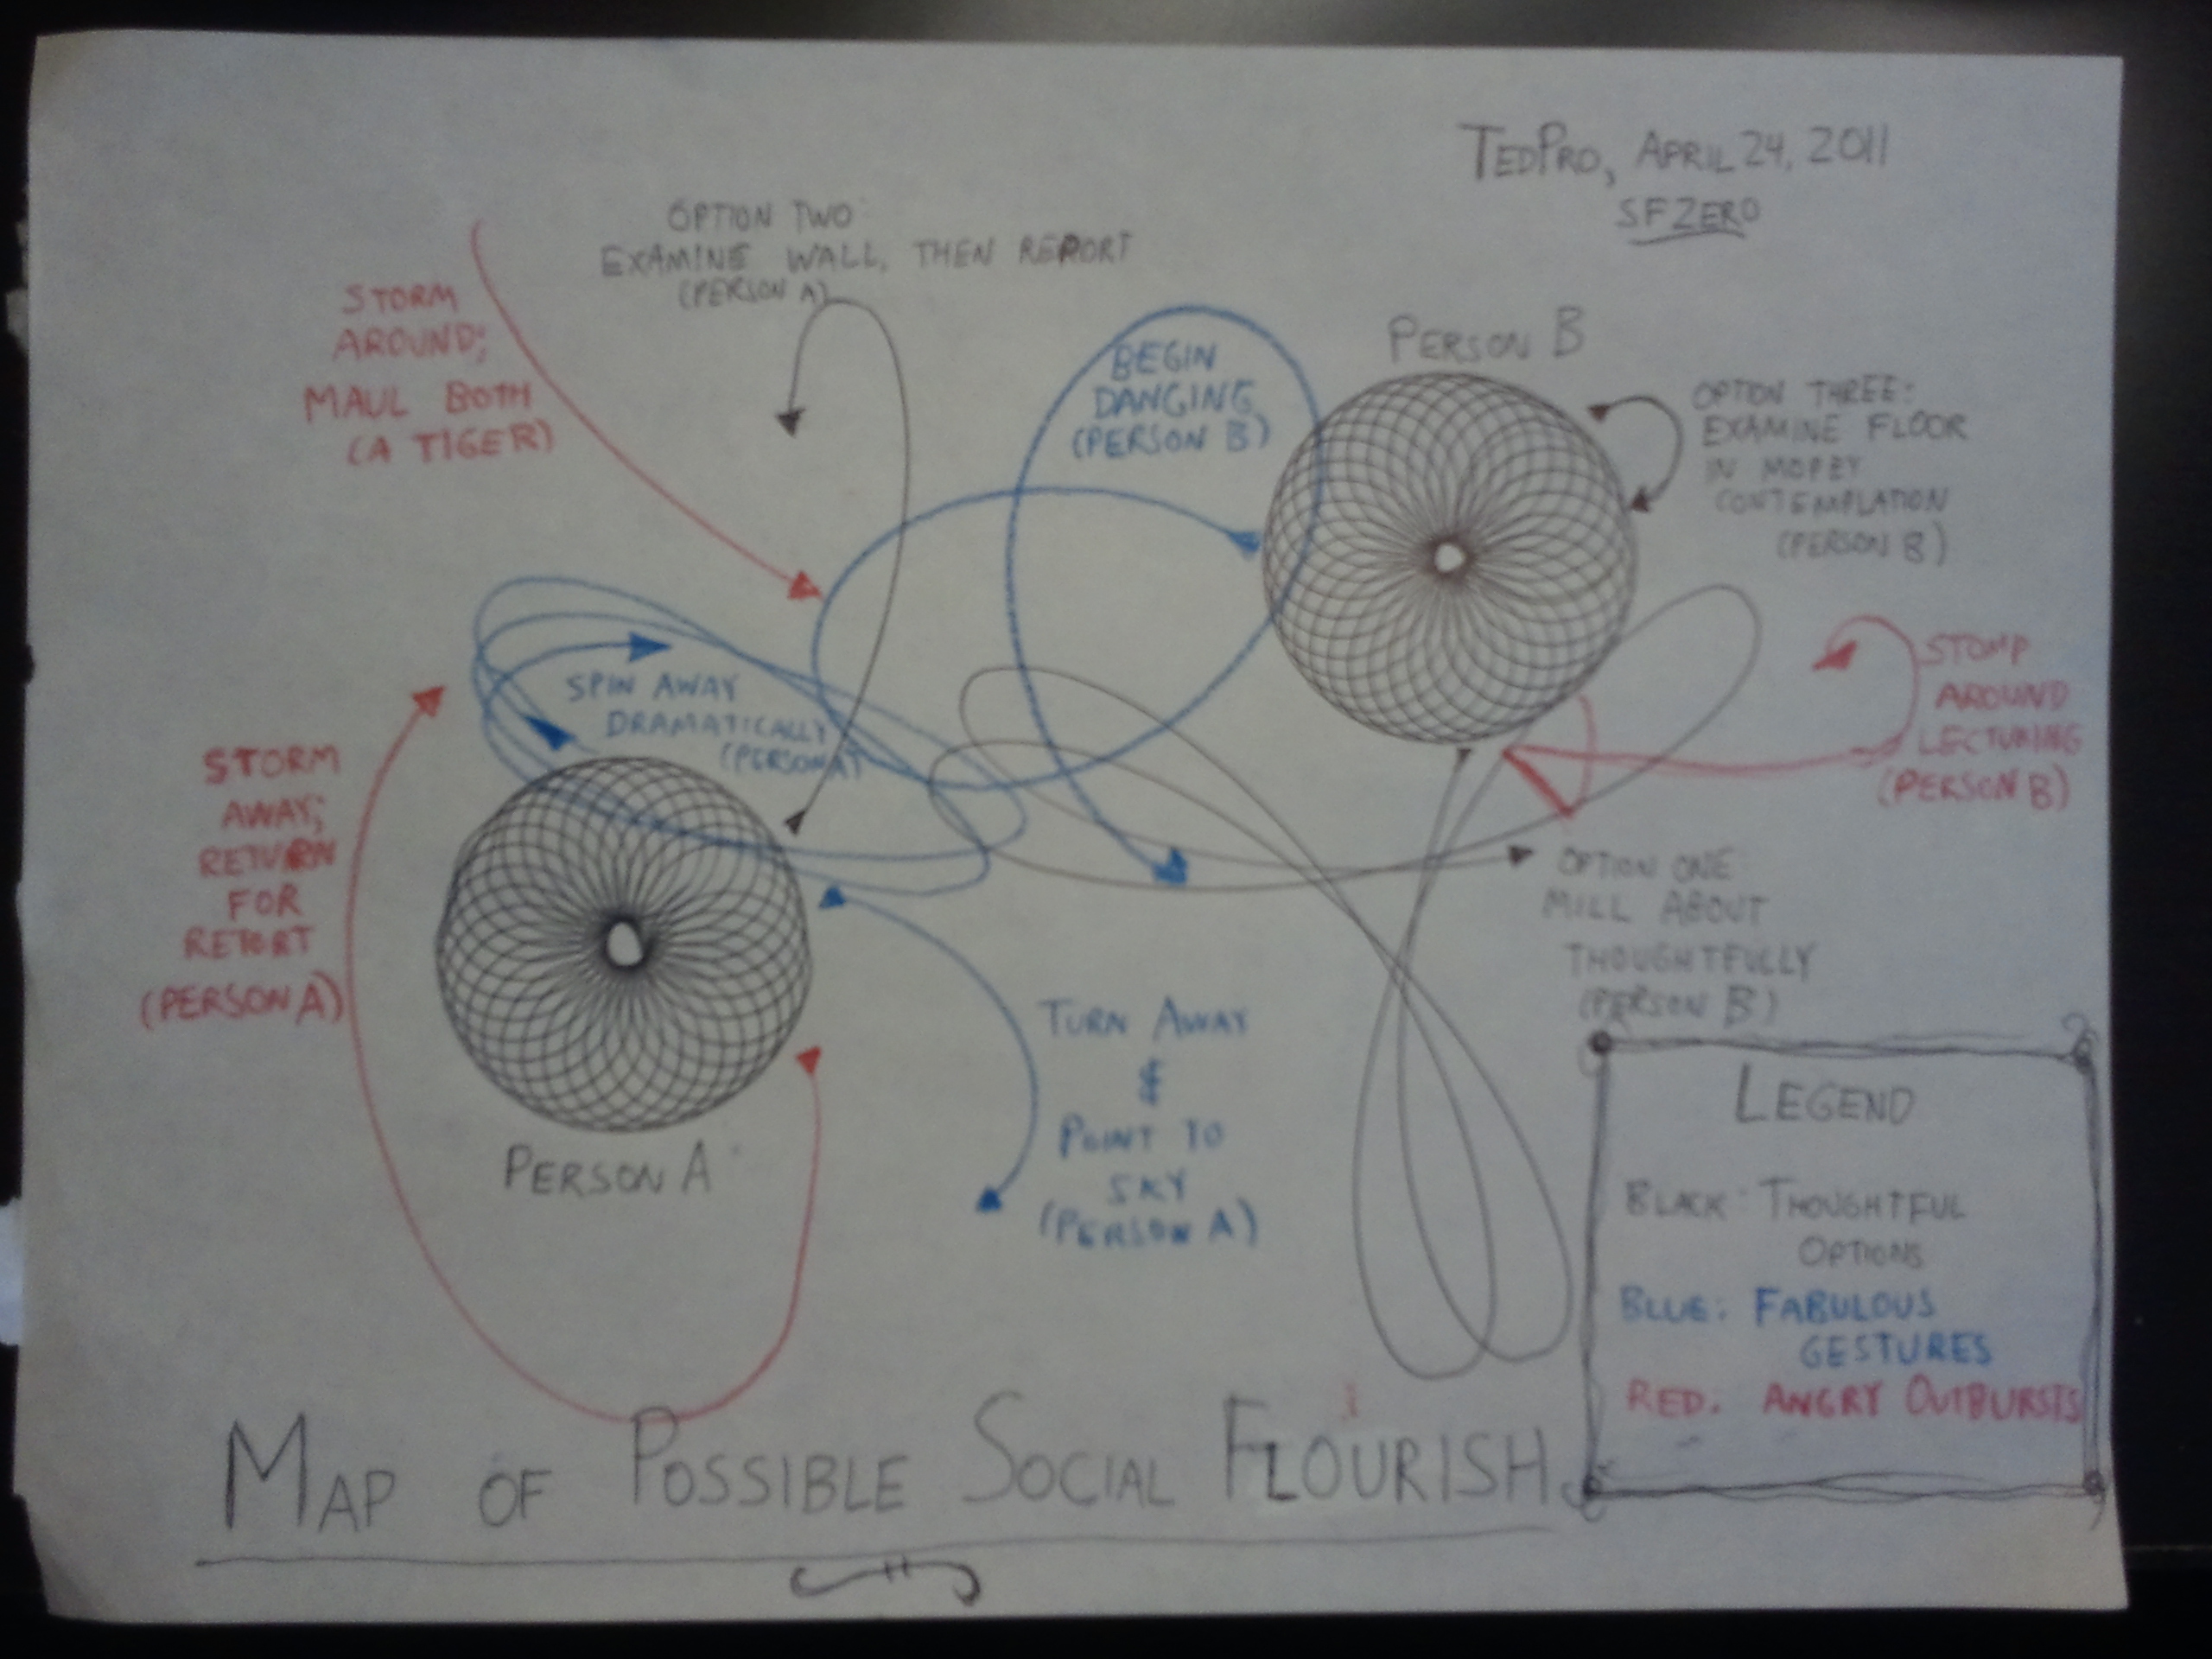 TEDPRO, APRIL 24, 2011
SFZERO
OPTION TWO
EXAMINE WALL, THEN REPORT
(PERSON A)
STORM
AROUND;
MAUL BOTH
(A TIGER)
BEGIN
DANCING
(PERSON B)
PERSON B
OPTION THREE:
EXAMINE FLOOR
IN MOPEY
CONTEMPLATION
(PERSON B)
SPIN AWAY
DRAMATICALLY
(PERSON A)
STOMP
AROUND
LECTURING
(PERSON B)
STORM
AWAY;
RETURN
FOR
RETORT
(PERSON A)
OPTION ONE
MILL ABOUT
THOUGHTFULLY
(PERSON B)
TURN AWAY
&
POINT TO
SKY
(PERSON A)
PERSON A
LEGEND
BLACK: THOUGHTFUL
OPTIONS
BLUE: FABULOUS
GESTURES
RED. ANGRY OUTBURSTS
MAP OF POSSIBLE SOCIAL FLOURISH